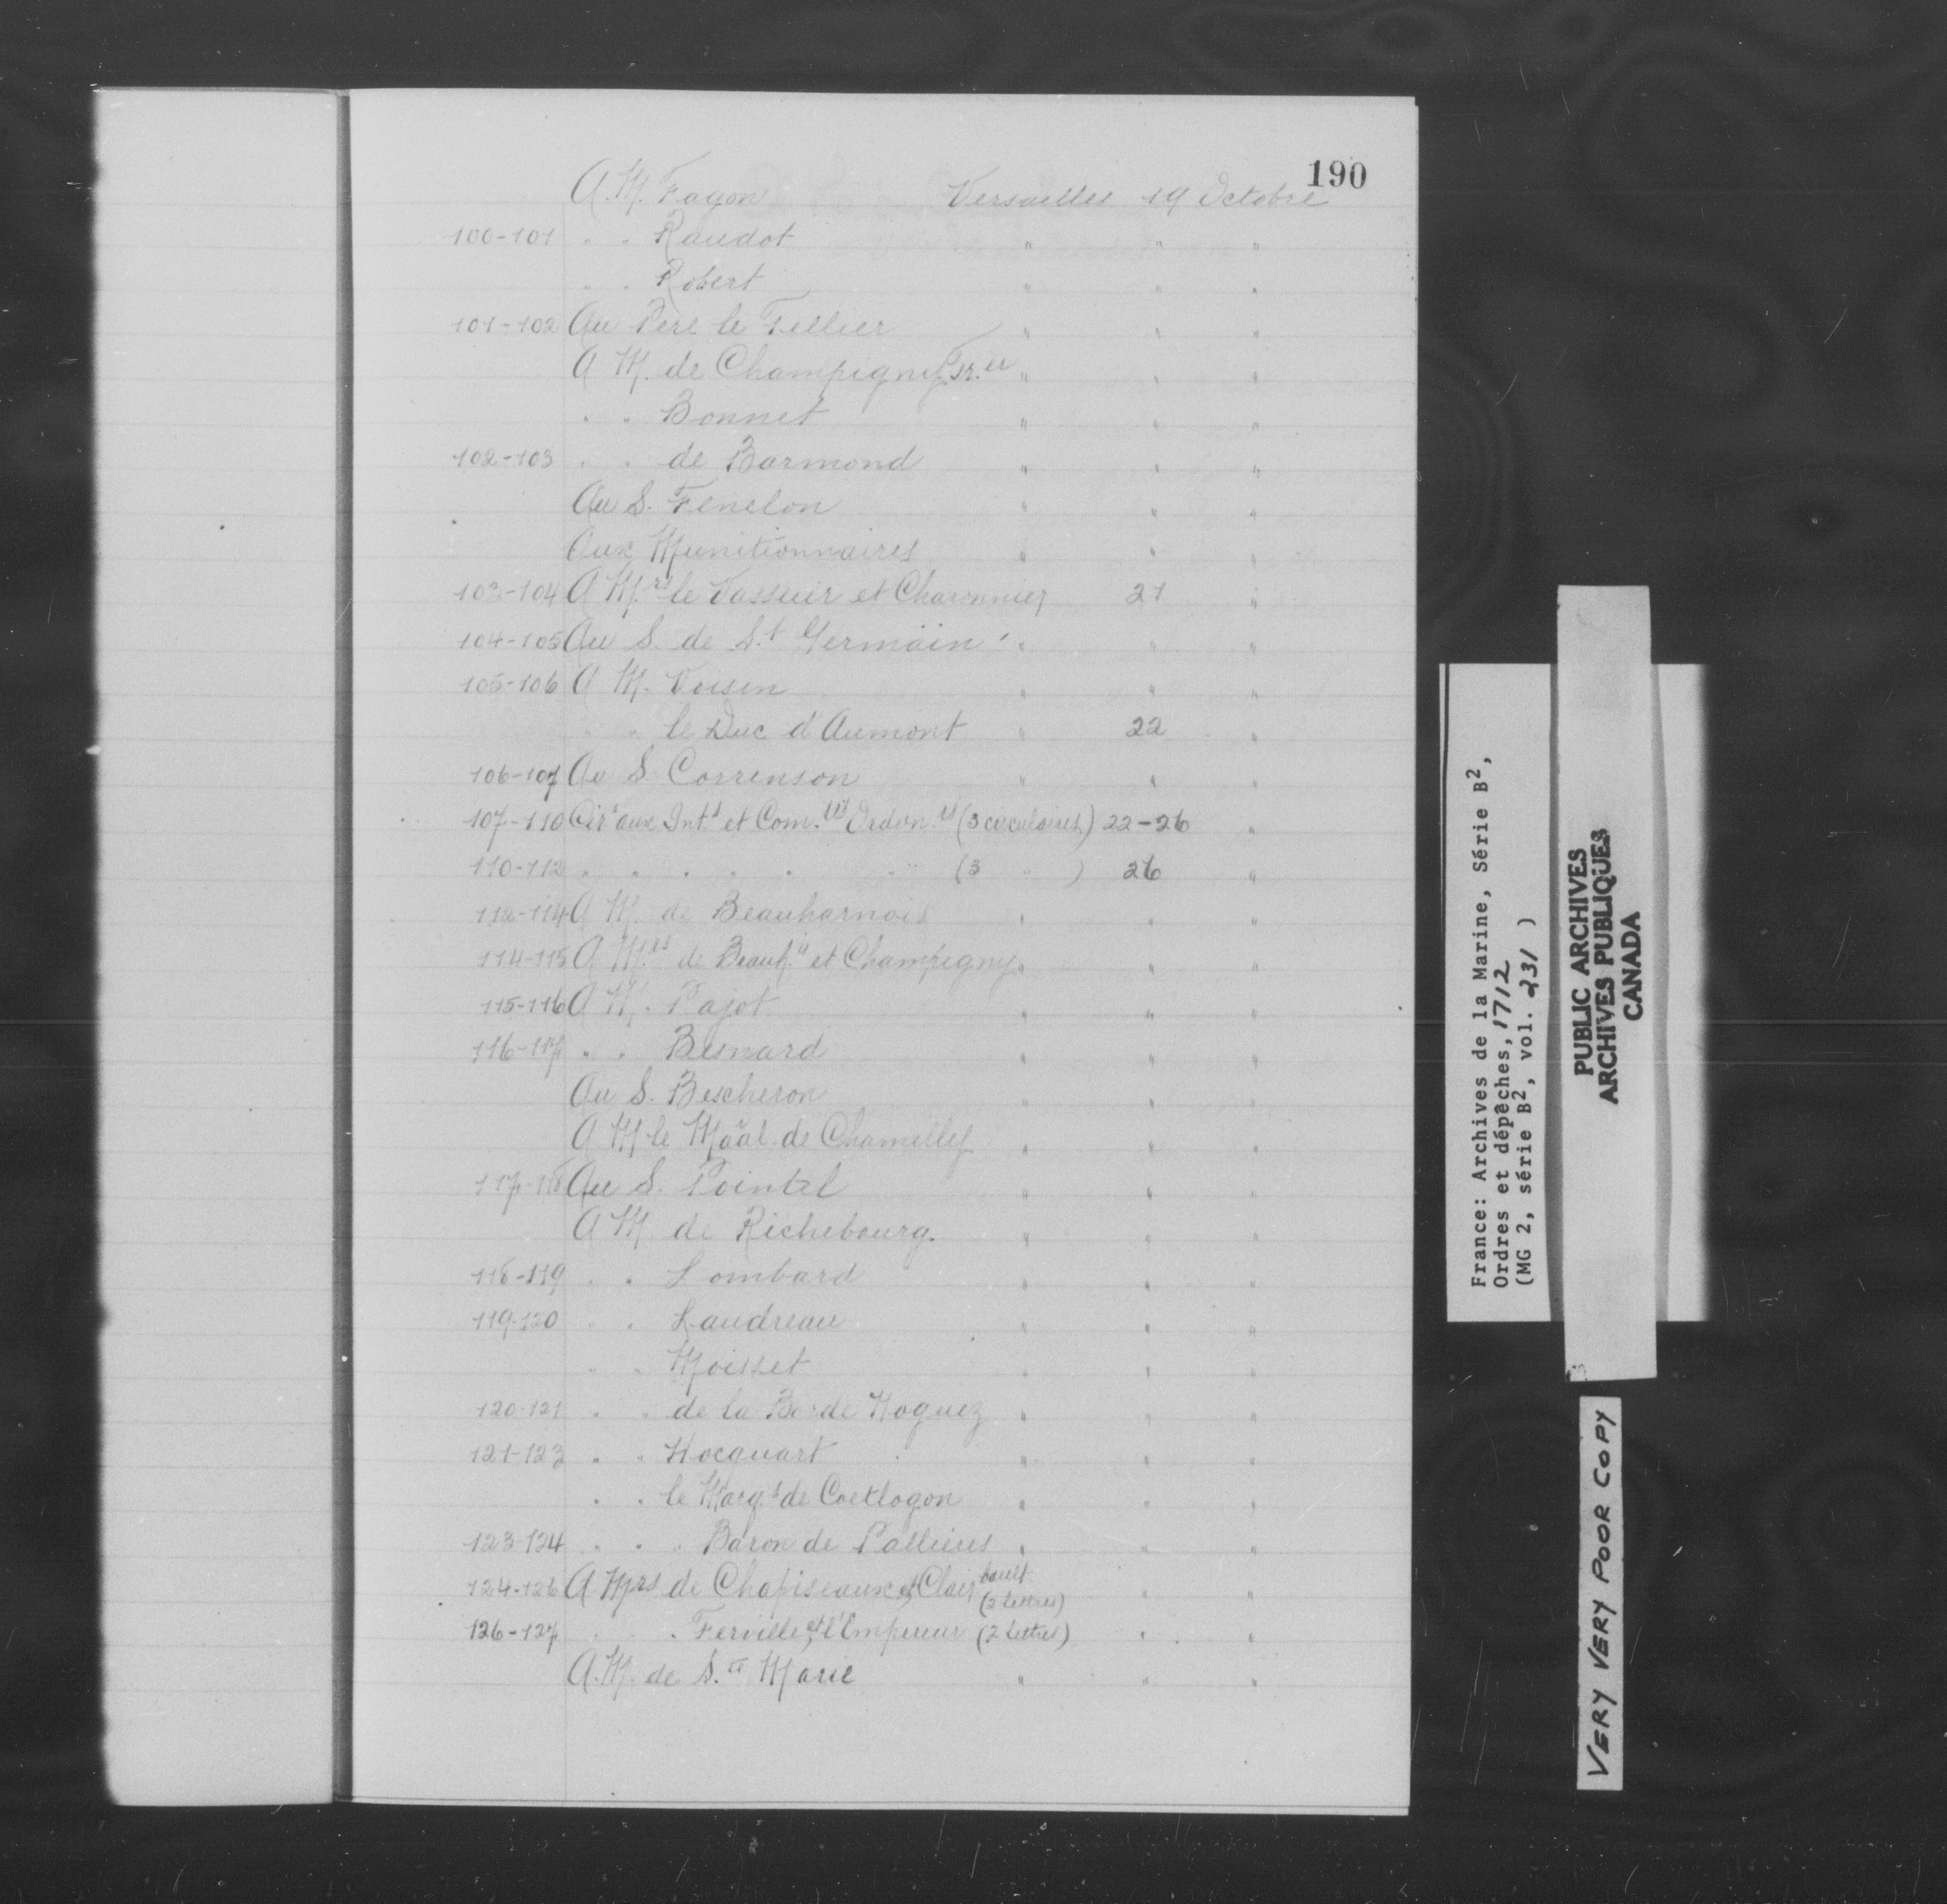 190
A. M. Fagon Versailles 19 Octobre
100-101 " " Raudot " " "
" " Robert " " "
101-102 Au Père le Tellier " " "
A M. de Champigny, Tr.er " " "
" " Bonnet " " "
102-103 " " de Barmond " " "
Au S. Fenelon " " "
Aux Munitionnaires " " "
103-104 A M.rs le Vasseur et Charonnier 21 "
104-105 Au S. de S.t Germain " " "
105-106 A M. Voisin " " "
" " le Duc d'Aumont " 22 "
106-107 Au S. Correnson " " "
107-110 Cir. aux Int.s et Com.res Ordon.rs (3 circulaires) 22-26 "
110-112 " " " " " " (3 " ) 26 "
112-114 A M. de Beauharnois " " "
114-115 A M.rs de Beauh.s et Champigny " " "
115-116 A M. Pajot " " "
116-117 " " Besnard " " "
Au S. Bescheron " " "
A M. le Maal. de Chamilly " " "
117-118 Au S. Pointel " " "
A M de Richebourg. " " "
118-119 " " Lombard " " "
119-120 " " Landreau " " "
" " Moisset " " "
120-121 " " de la Borde Hoguez " " "
121-123 " " Hocquart " " "
" " le Marq.s de Coetlogon " " "
123-124 " " " Baron de Pallières " " "
124-126 A Mrs de Chapiseaux et Clairbault (2 lettres) " "
126-127 " " Ferville et l'Empereur (2 lettres) " "
A. M. de S.te Marie " " "
France: Archives de la Marine, Série B2,
Ordres et dépêches, 1712
(MG 2, série B2, vol. 231 )
PUBLIC ARCHIVES
ARCHIVES PUBLIQUES
CANADA
VERY VERY POOR COPY